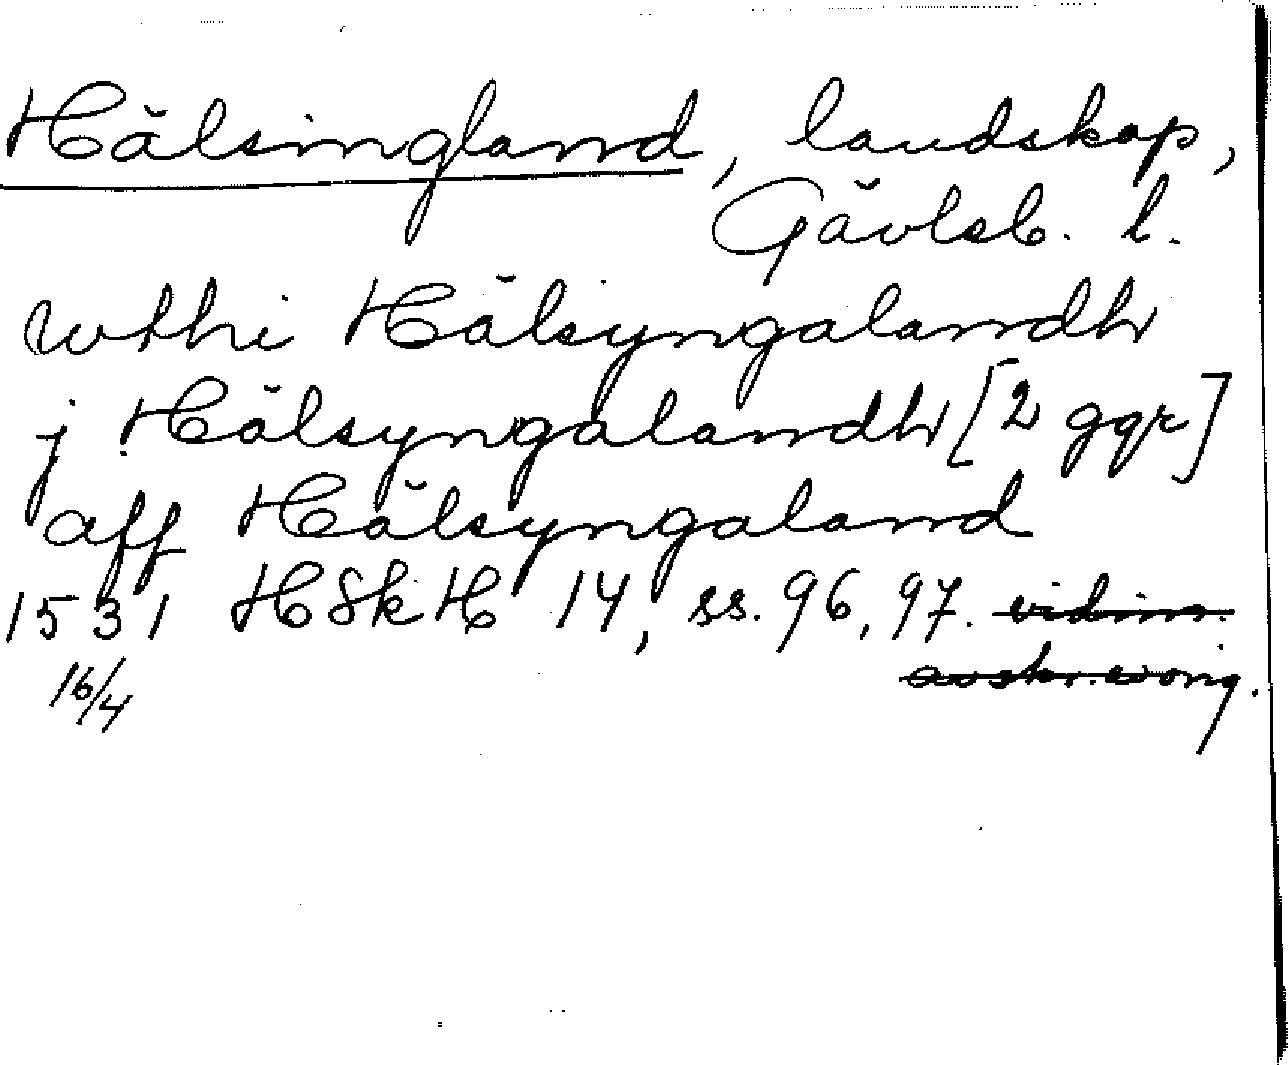 Hälsingland, landskap,
Gävleb. l.
wthi Hälsyngalandh
j Hälsyngalandh [2 ggr]
aff Hälsyngaland
1531 HSkH 14, ss. 96, 97. vidim.
16/4 avskr. av orig.